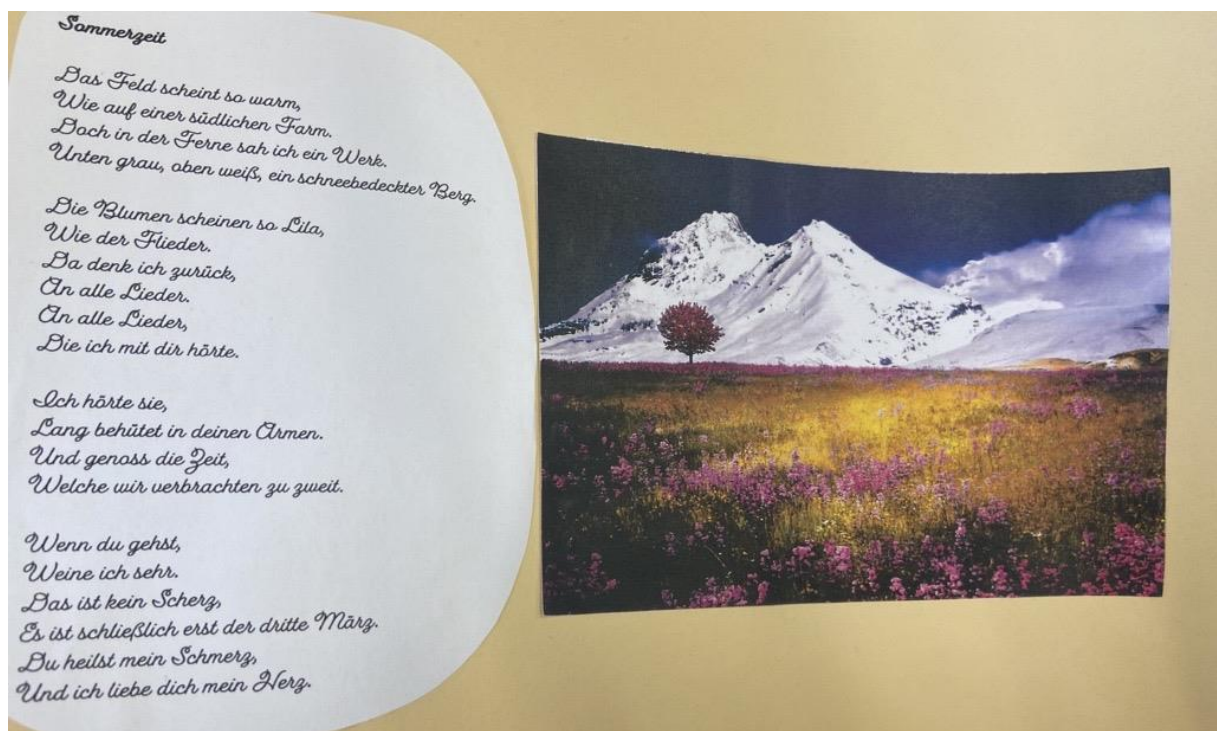 Sommerzeit
Das Feld scheint so warm,
Wie auf einer südlichen Farm.
Doch in der Ferne sah ich ein Werk.
Unten grau, oben weiß, ein schneebedeckter Berg.
Die Blumen scheinen so Lila,
Wie der Flieder.
Da denk ich zurück,
An alle Lieder.
An alle Lieder,
Die ich mit dir hörte.
Ich hörte sie,
Lang behütet in deinen Armen.
Und genoss die Zeit,
Welche wir verbrachten zu zweit.
Wenn du gehst,
Weine ich sehr.
Das ist kein Scherz,
Es ist schließlich erst der dritte März.
Du heilst mein Schmerz,
Und ich liebe dich mein Herz.